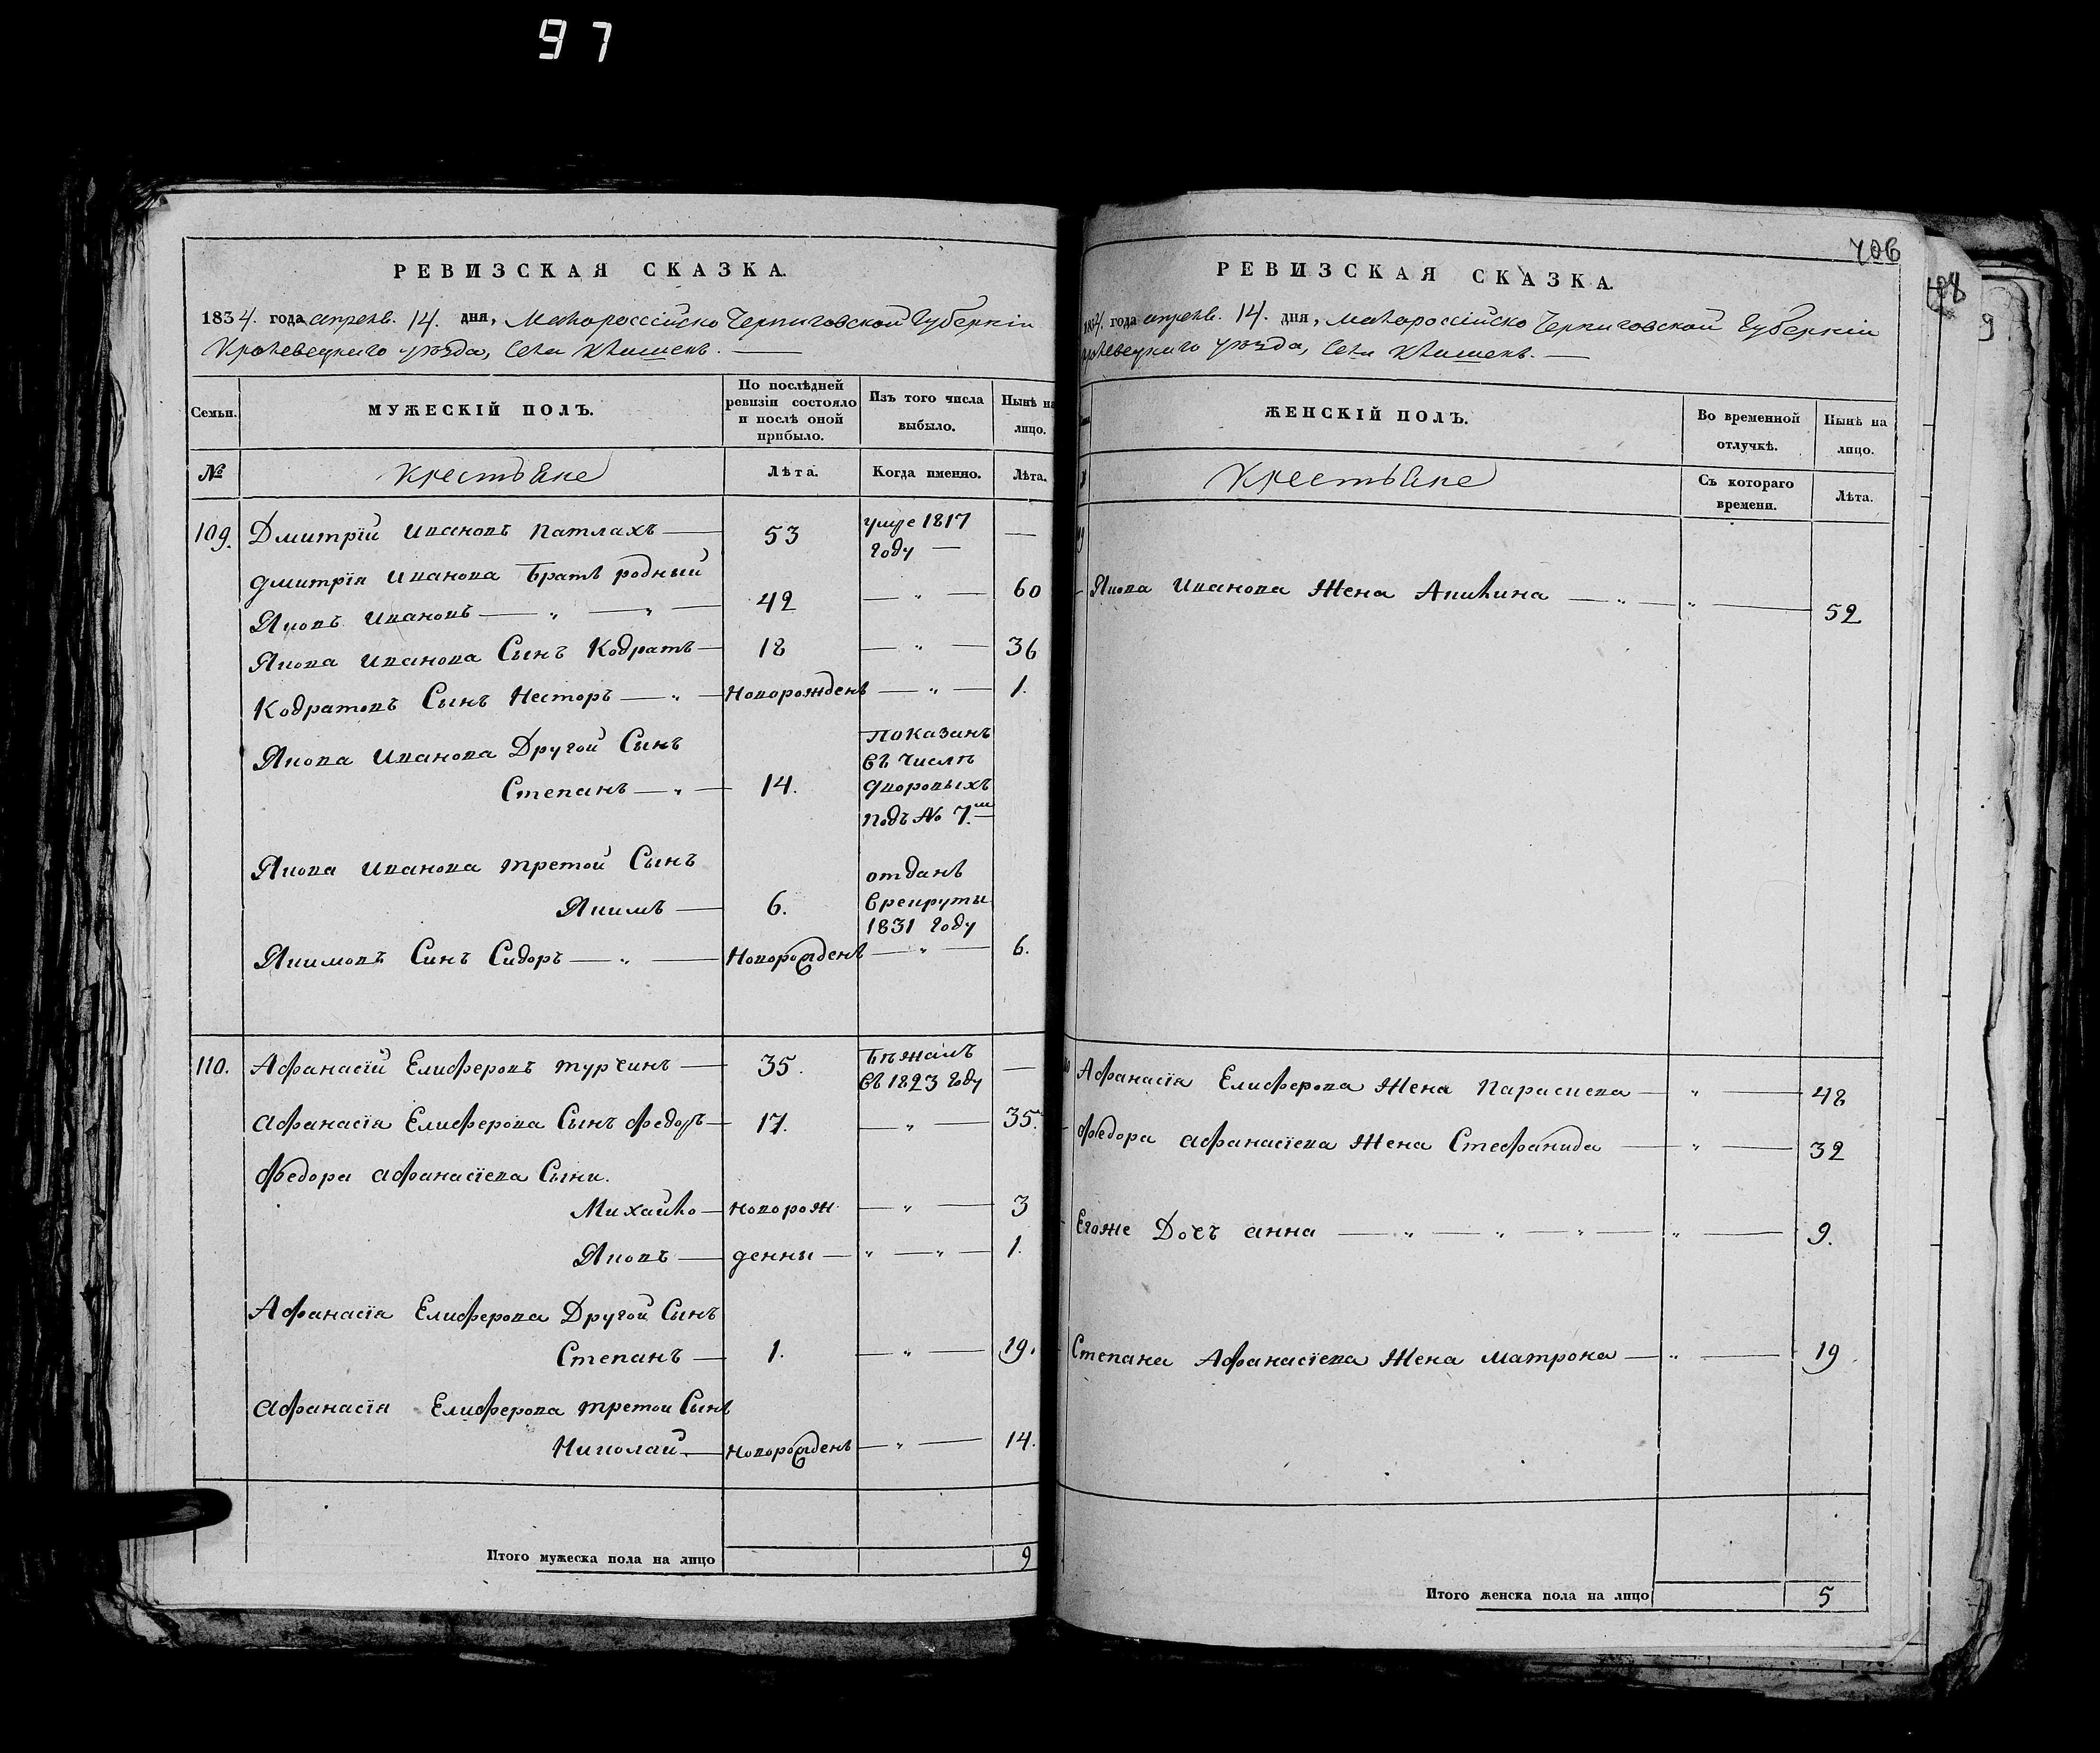 97
РЕВИЗСКАЯ СКАЗКА.
1834. года апреля. 14. дня, Малороссійско Черниговской Губерніи
Кролевецкаго уѣзда, Села Клишекъ.
Семьи. МУЖЕСКІЙ ПОЛЪ. По послѣдней ревизіи состояло и послѣ оной прибыло. Изъ того числа выбыло. Нынѣ на лицо.
№ Крестьяне Лѣта. Когда именно. Лѣта.
109. Дмитрій Ивановъ Патлахъ 53 умре 1817 году —
Дмитрія Иванова Братъ родный
Яковъ Ивановъ 42 — " — 60
Якова Иванова Сынъ Кодратъ 18 — " — 36
Кодратовъ Сынъ Несторъ Новорожденъ — " — 1.
Якова Иванова Другой Сынъ
Степанъ 14. показанъ въ числѣ дворовыхъ подъ № 7.м
Якова Иванова третой Сынъ
Якимъ 6. отданъ врекруты 1831 году
Якимовъ Синъ Сидоръ Новорожденъ — " — 6.
110. Афанасій Елисферовъ Турчинъ 35. Бѣжалъ въ 1823 году —
Афанасія Елисферова Сынъ Федоръ 17. — " — 35.
Федора Афанасіева Сыни.
Михайло новорож — " — 3
Яковъ денни — " — " — 1.
Афанасія Елисферова Другой Сынъ
Степанъ 1. — " — 19.
Афанасія Елисферова третой Сынъ
Николай Новорожденъ — " — 14.
Итого мужеска пола на лицо 9
706
РЕВИЗСКАЯ СКАЗКА.
1834. года апреля. 14. дня, Малороссійско Черниговской Губерніи
Кролевецкаго уѣзда, Села Клишекъ.
ЖЕНСКІЙ ПОЛЪ. Во временной отлучкѣ. Нынѣ на лицо.
Крестьяне Съ котораго времени. Лѣта.
Якова Иванова Жена Акилина — " — " — 52
Афанасія Елисферова Жена Парасцева — " — 48
Федора Афанасіева Жена Стефанида — " — 32
Егоже Дочъ Анна — " — " — " — " — 9.
Степана Афанасіева Жена Матрона — " — 19
Итого женска пола на лицо 5